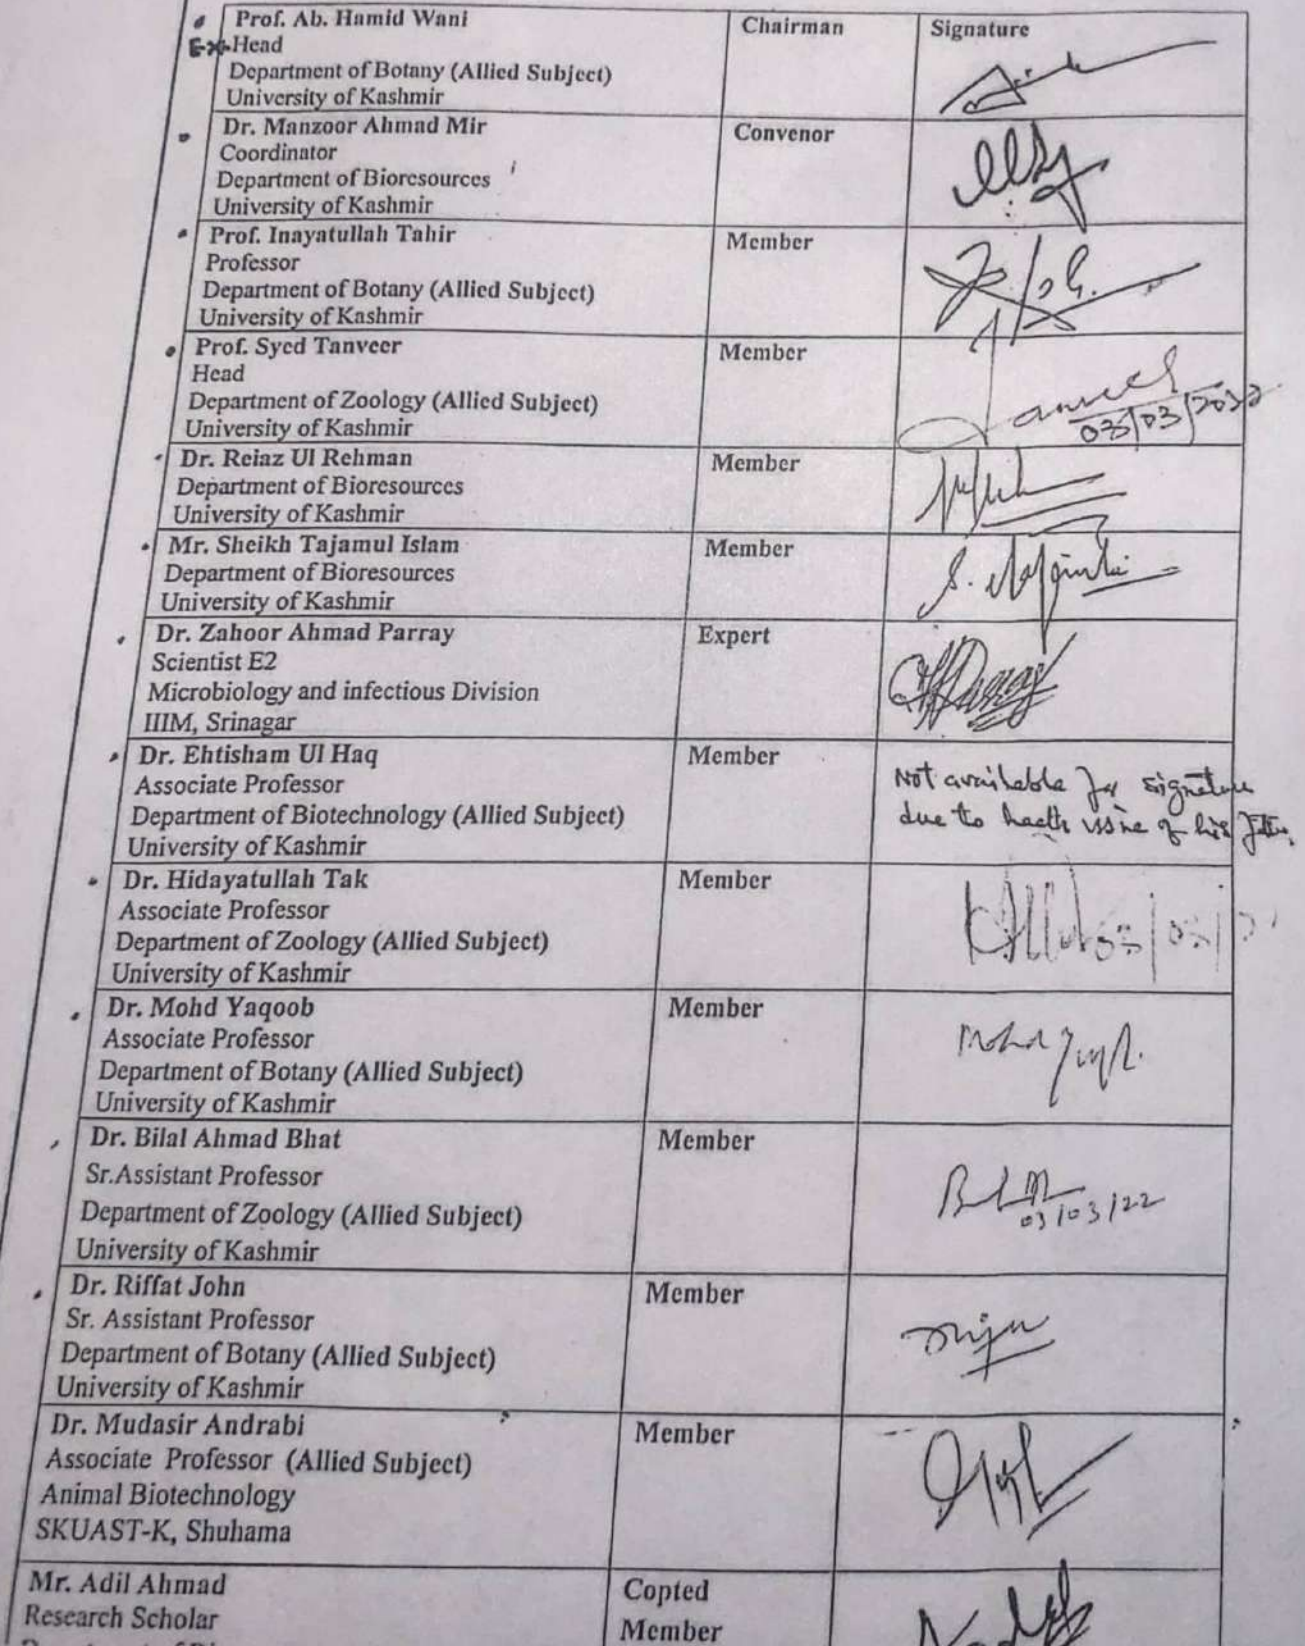 Prof. Ab. Hamid Wani
Ex-Head
Department of Botany (Allied Subject)
University of Kashmir
Chairman
Signature
Dr. Manzoor Ahmad Mir
Coordinator
Department of Bioresources
University of Kashmir
Convenor
Prof. Inayatullah Tahir
Professor
Department of Botany (Allied Subject)
University of Kashmir
Member
Prof. Syed Tanveer
Head
Department of Zoology (Allied Subject)
University of Kashmir
Member
03/03/2022
Dr. Reiaz Ul Rehman
Department of Bioresources
University of Kashmir
Member
Mr. Sheikh Tajamul Islam
Department of Bioresources
University of Kashmir
Member
Dr. Zahoor Ahmad Parray
Scientist E2
Microbiology and infectious Division
IIIM, Srinagar
Expert
Dr. Ehtisham Ul Haq
Associate Professor
Department of Biotechnology (Allied Subject)
University of Kashmir
Member
Not available for signature
due to health issue of his father
Dr. Hidayatullah Tak
Associate Professor
Department of Zoology (Allied Subject)
University of Kashmir
Member
Dr. Mohd Yaqoob
Associate Professor
Department of Botany (Allied Subject)
University of Kashmir
Member
Mohd
Dr. Bilal Ahmad Bhat
Sr.Assistant Professor
Department of Zoology (Allied Subject)
University of Kashmir
Member
03/03/22
Dr. Riffat John
Sr. Assistant Professor
Department of Botany (Allied Subject)
University of Kashmir
Member
Dr. Mudasir Andrabi
Associate Professor (Allied Subject)
Animal Biotechnology
SKUAST-K, Shuhama
Member
Mr. Adil Ahmad
Research Scholar
Copted
Member